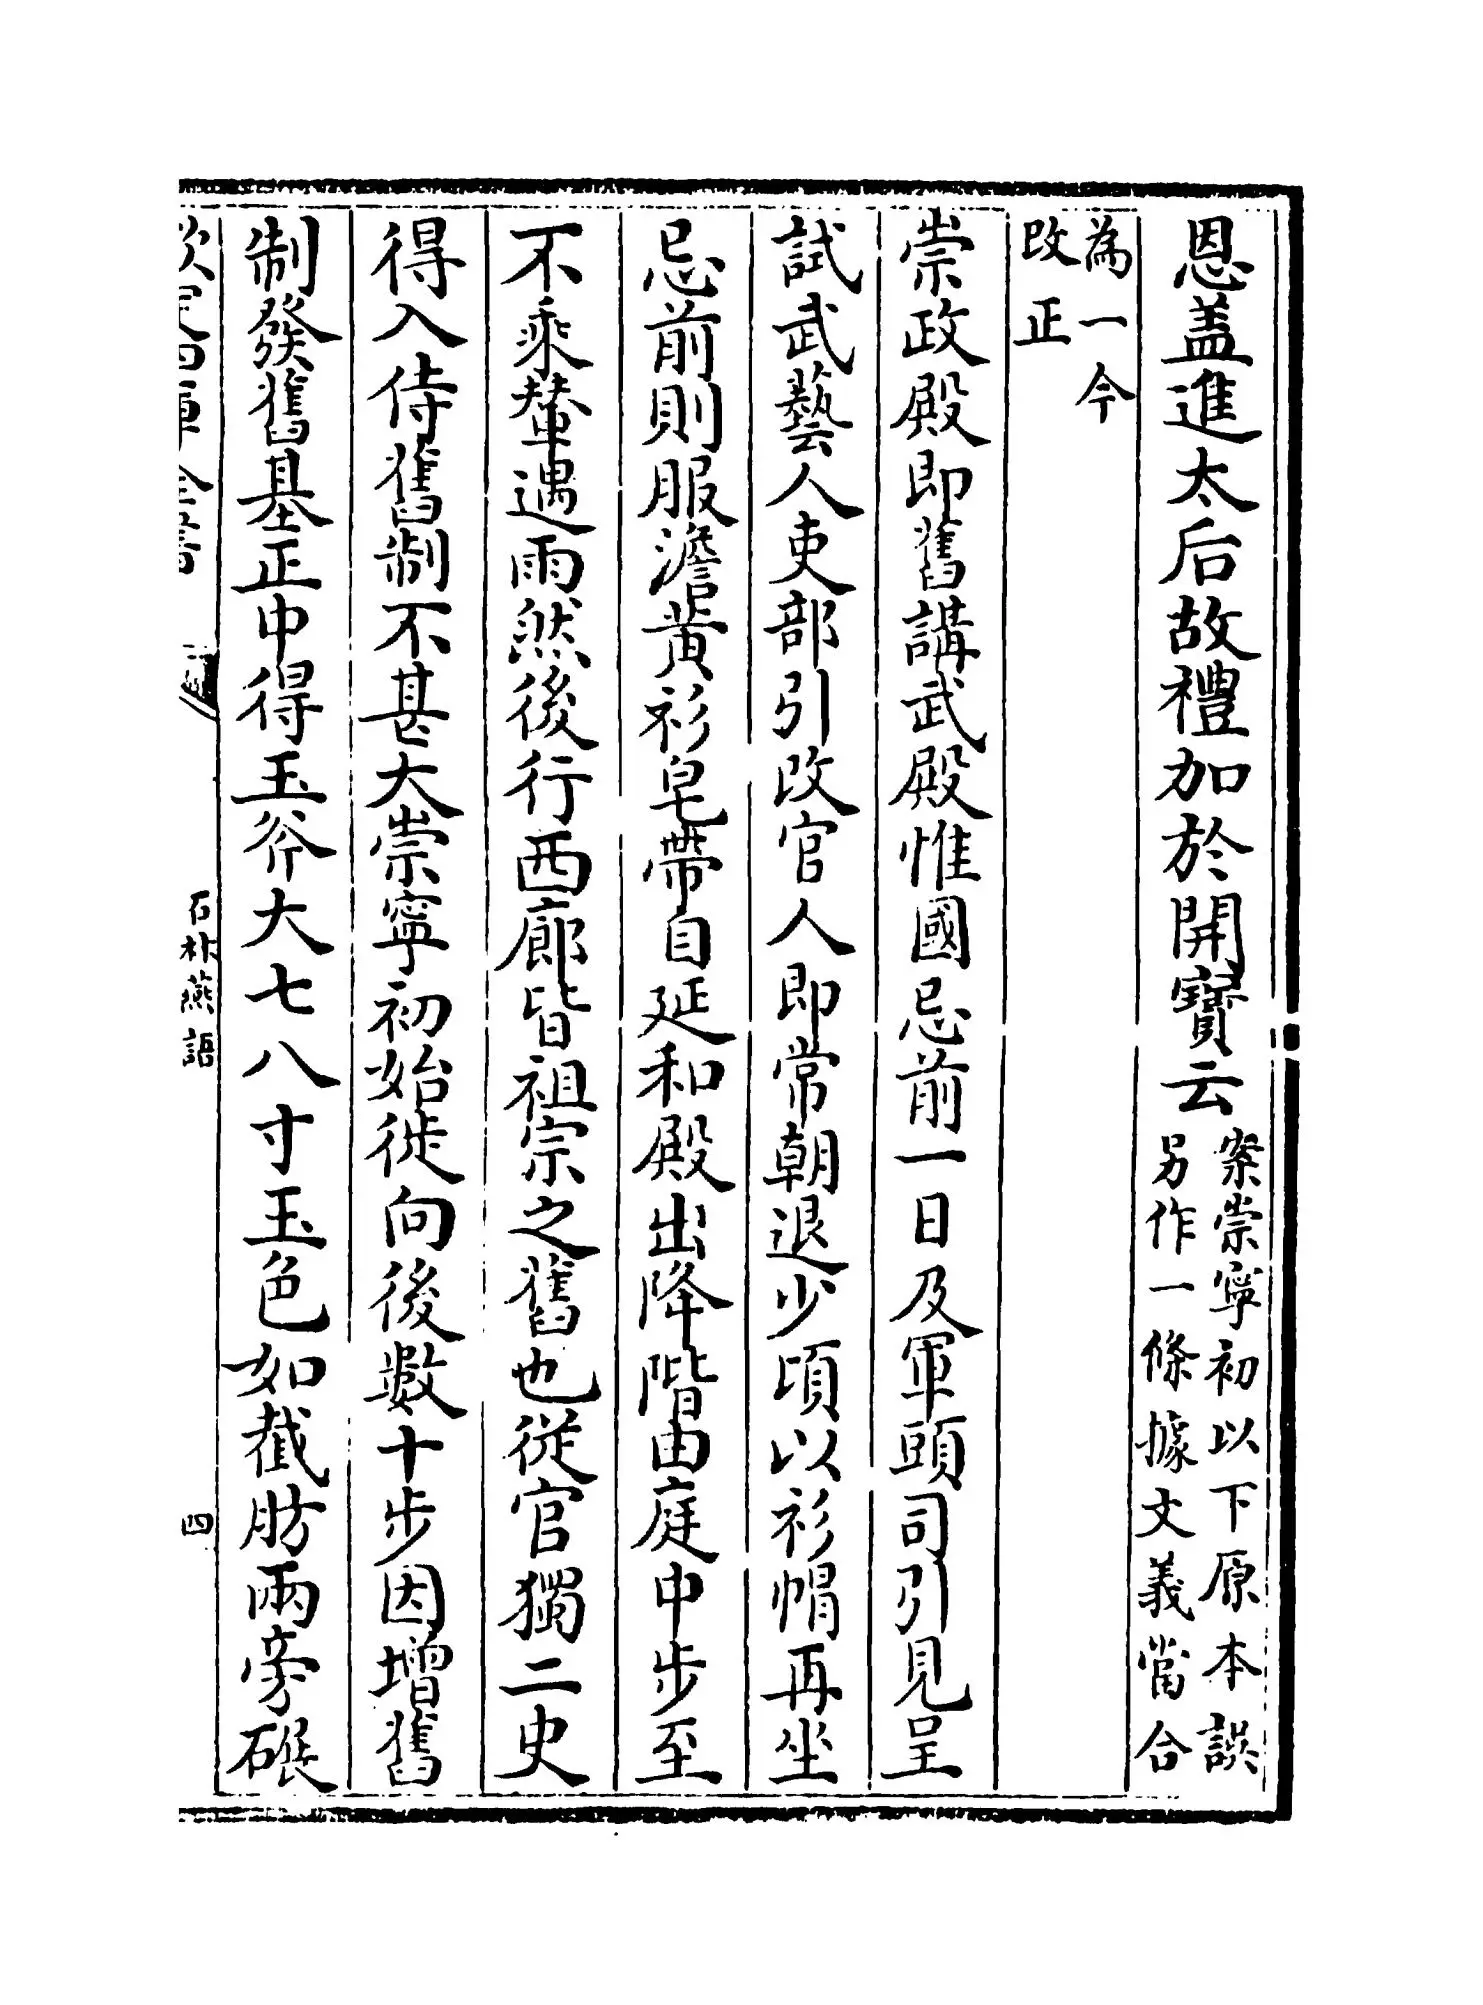 恩蓋進太后故禮加於開寳云案崇寧初以下原本誤
另作一條據文義當合
為一今
改正
崇政殿即舊講武殿惟國忌前一日及軍頭司引見呈
試武藝人吏部引改官人即常朝退少頃以衫帽再坐
忌前則服澹黄衫皂帶自延和殿出降階由庭中步至
不乘輦遇雨然後行西廊皆祖宗之舊也從官獨二史
得入侍舊制不甚大崇寧初始徙向後數十步因增舊
制發舊基正中得玉斧大七八寸玉色如截肪兩旁碾
欽定四庫全書
石林燕語
四